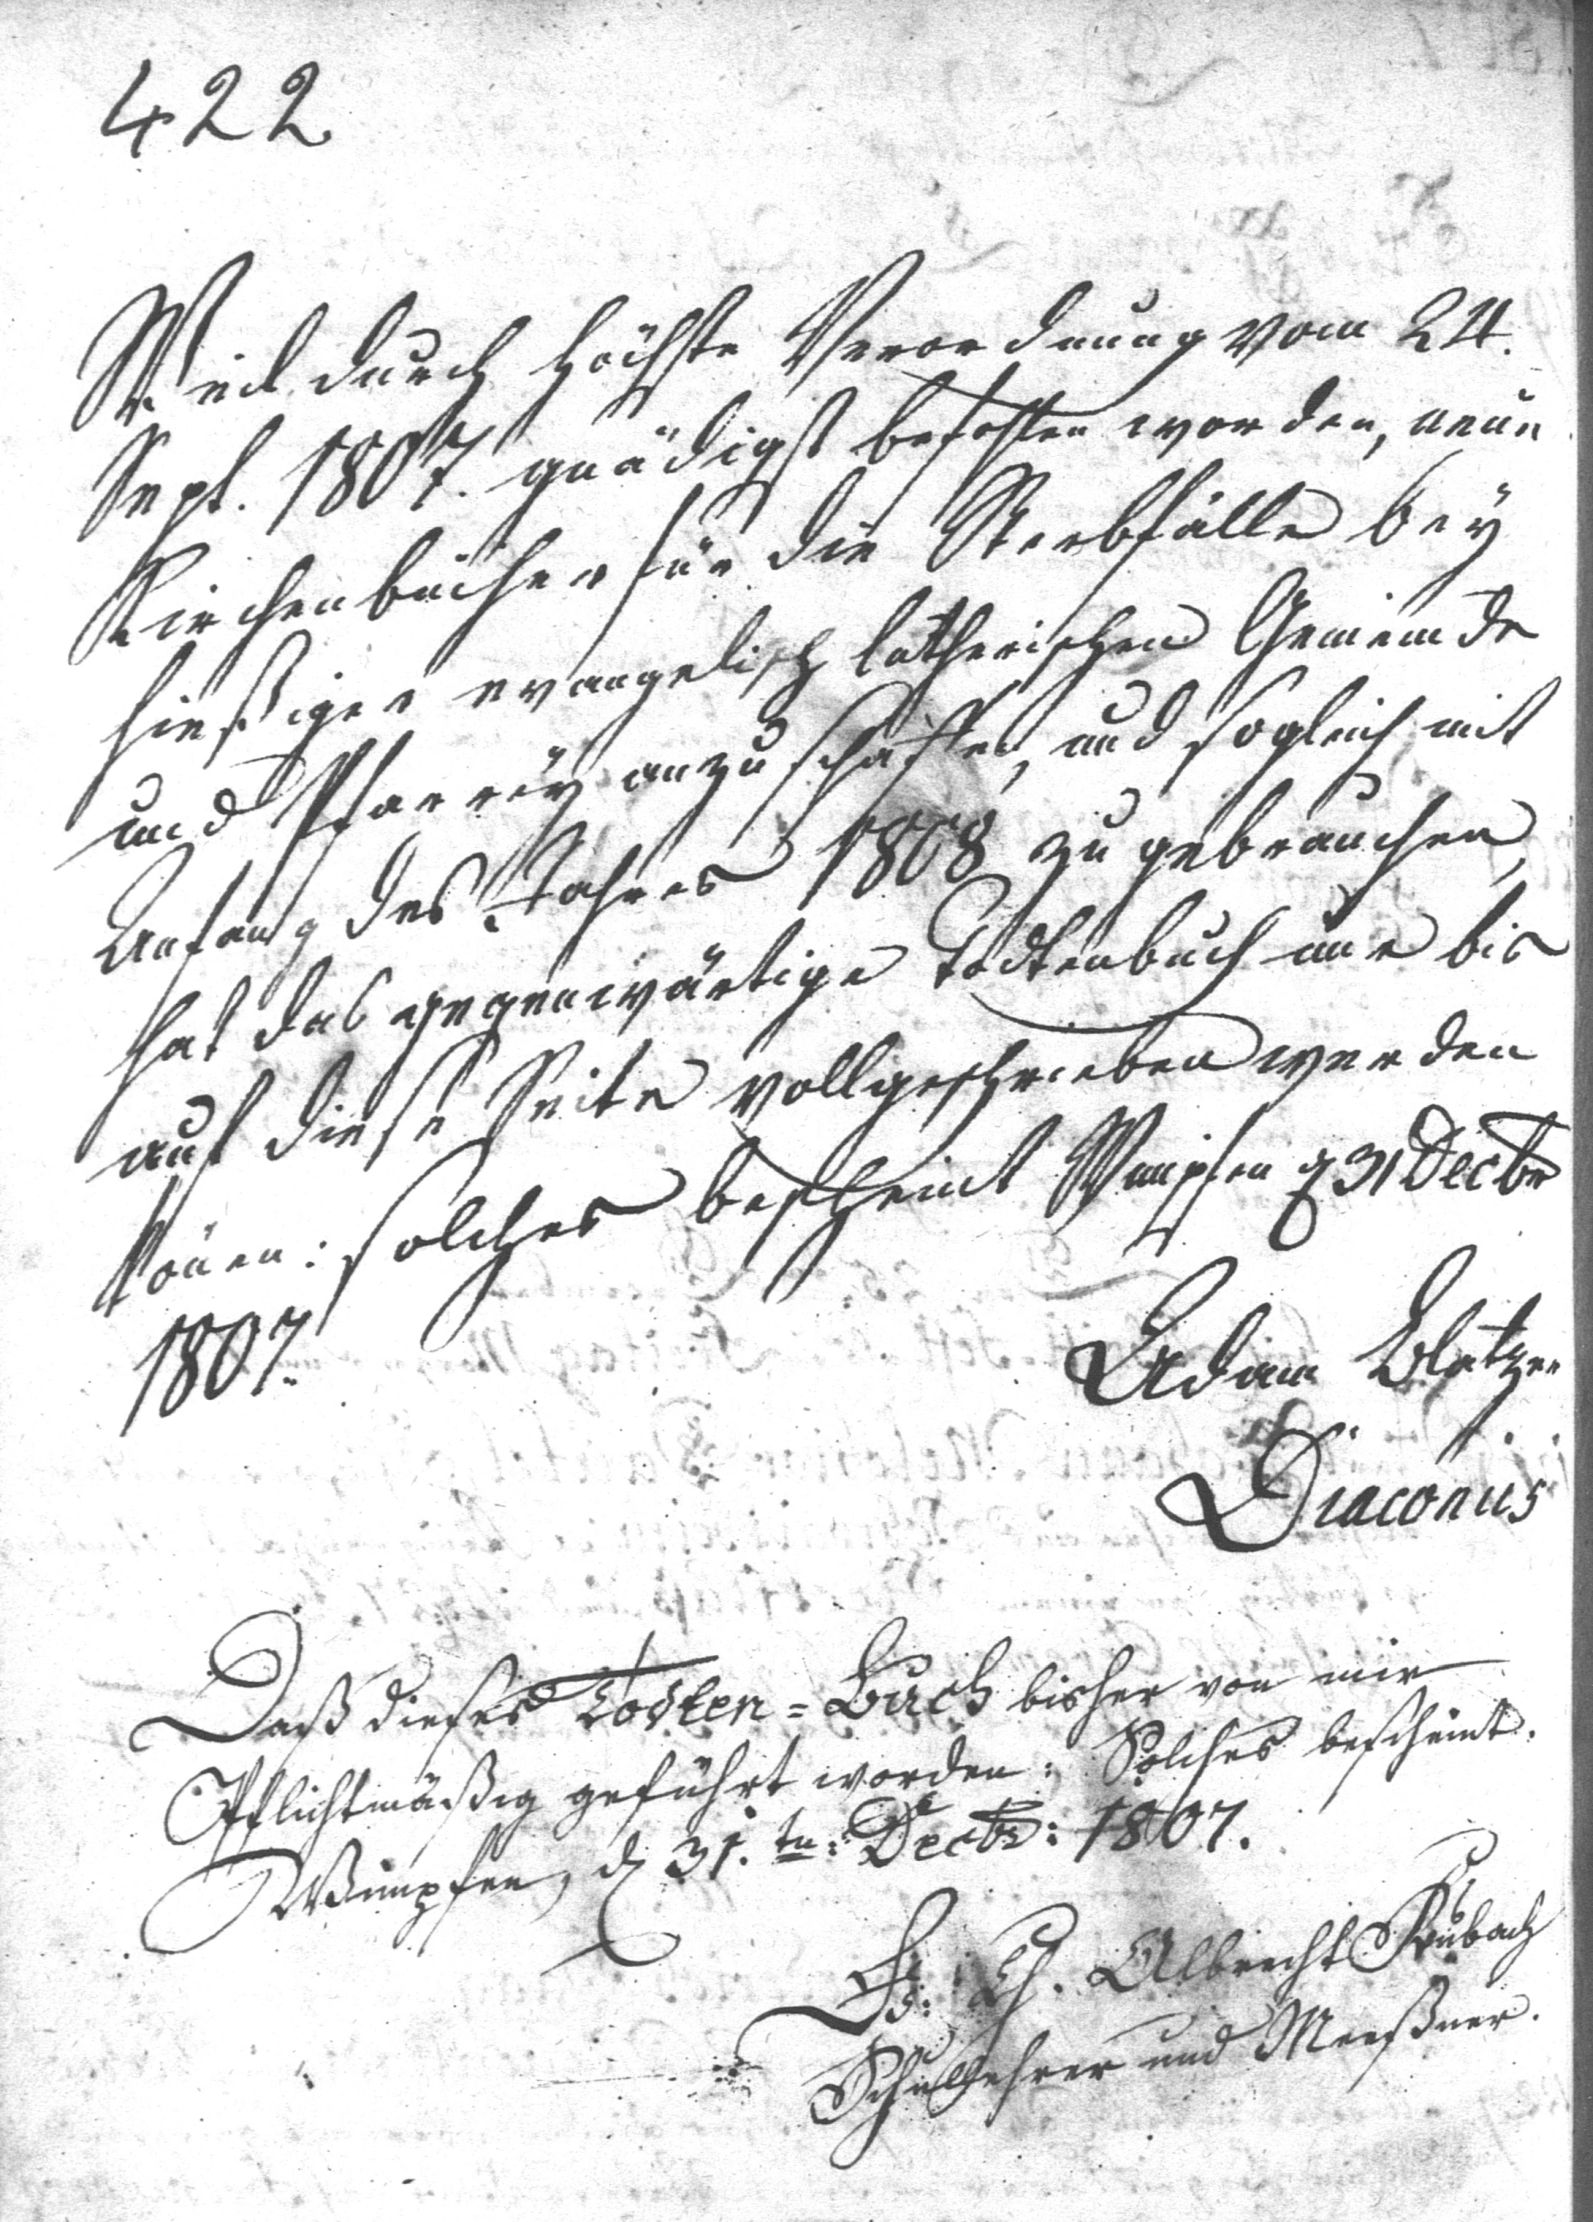 422
Weil durch höchste Verordnung vom 24.
Sept. 1807. gnädigst befohlen worden, neue
Kirchenbücher für die Sterbfälle bey
hießiger evangelisch lutherischen Gemeinde
und Pfarrey anzuschaffen, und sogleich mit
Anfang des Jahres 1808 zu gebrauchen,
hat das gegenwärtige Todtenbuch nur bis
auf diese Seite vollgeschrieben werden
könen: solches bescheint Wimpfen d 31 Decbr
1807.
Adam Blatzer
Diaconus
Daß dieses Todten-Buch bisher von mir
Pflichtmäßig geführt worden: Solches bescheint.
Wimpfen, d 31.tn: Decbr: 1807.
Albrecht
Schullehrer und Meeßner.